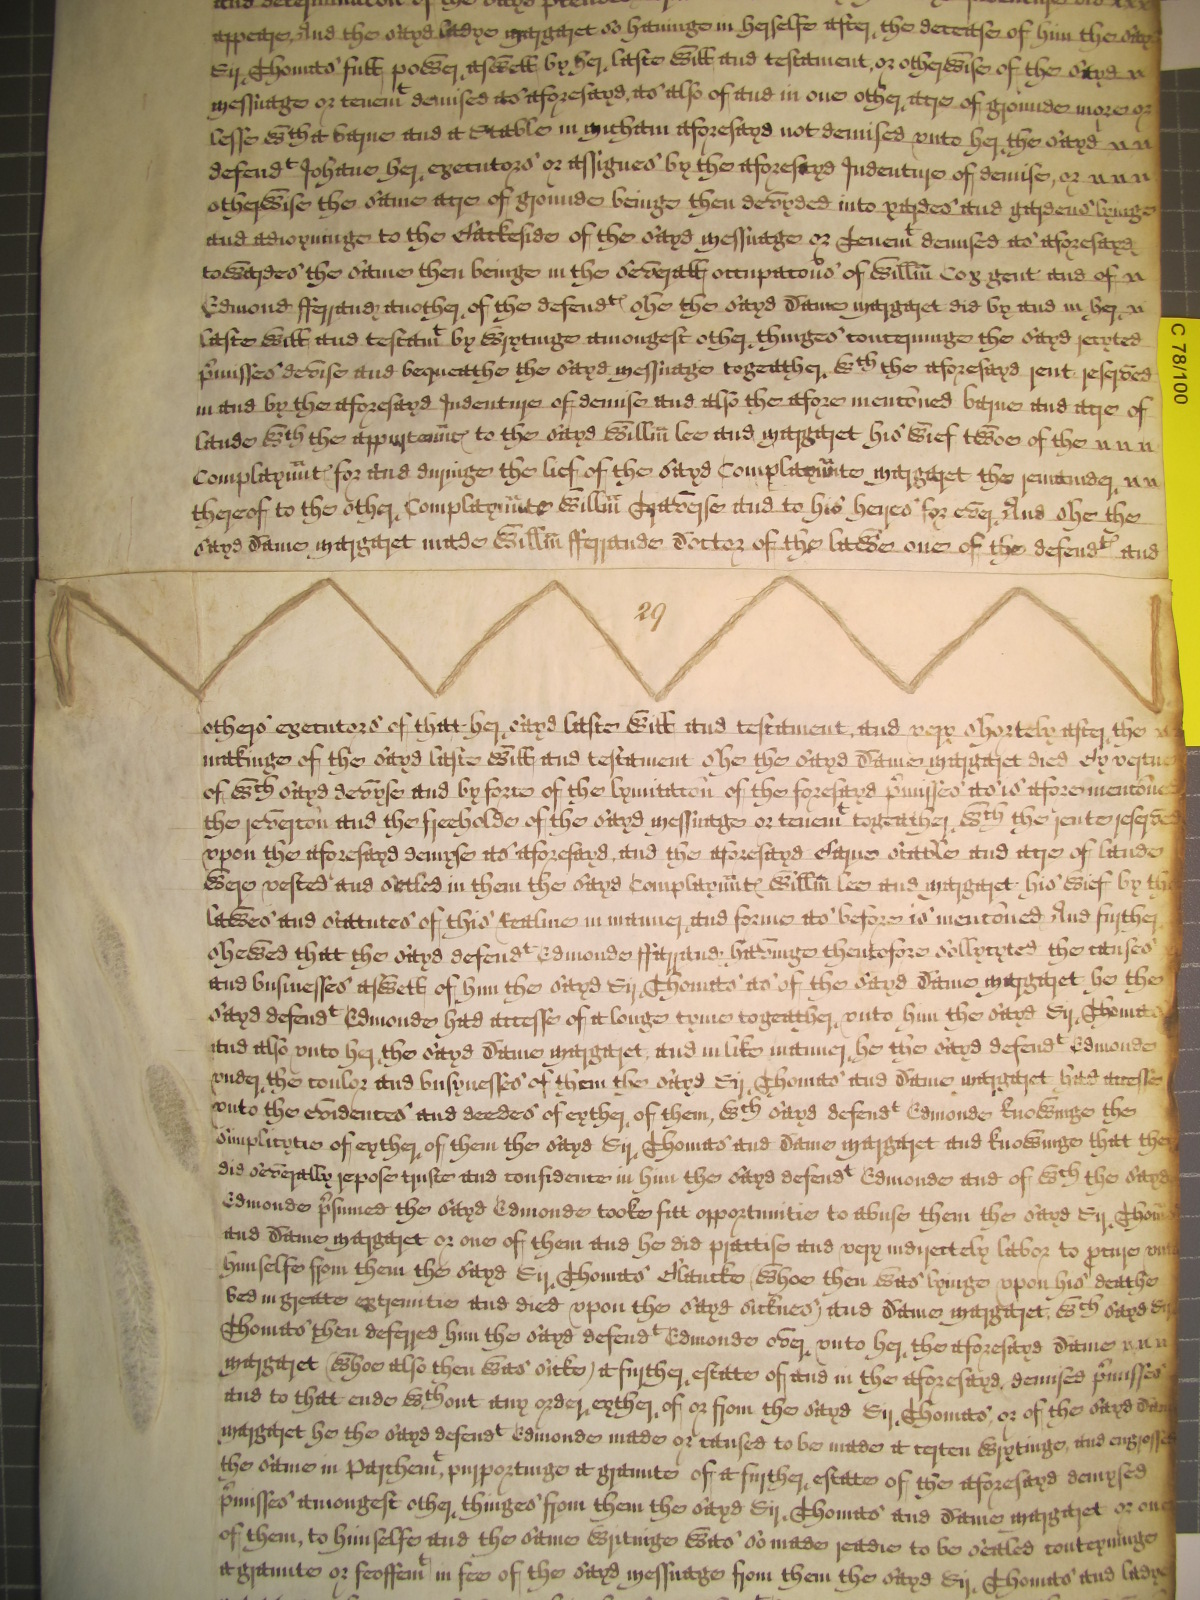 and determination of the sayd
appeare, And the sayd ladye margaret so havinge in herselfe after the decease of him the sayd
Sir Thomas full power aswell by her laste will and testament, or otherwise of the sayd
messuage or tenemt demised as aforesayd, as also of and in one other acre of grounde more or
lesse wth a barne and a stable in micham aforesayd not demised vnto her the sayd
defendt Johane her executors or assignes by the aforesayd Indenture of demise, or
otherwise the same acre of grounde beinge then devyded into yardes and gardens lyinge
and adioyninge to the backeside of the sayd messuage or Tenemt demised as aforesayd
towardes the same then beinge in the severall occupacons of Willm Cox gent and of
Edmond fferrand another of the defendts she the sayd Dame margaret did by and in her
laste will and testamt by wrytinge amongest other thinges concerninge the sayd recyted
p'misses devise and bequeathe the sayd messuage togeather wth the aforesayd rent reserved
in and by the aforesayd Indenture of demise and also the afore mentoned barne and acre of
lande wth the appurtennc to the sayd Willm lee and margaret his wief twoe of the
Complaynnts for and duringe the lief of the sayd Complaynnte margaret the remainder
thereof to the other Complaynnte Willm Traverse and to his heires for ever. And she the
sayd Dame margaret made Willm fferrande Doctor of the lawe one of the defendts and
29
others executors of that her sayd laste will and testament, and very shortely after the
makinge of the sayd laste will and testament she the sayd Dame margaret died By vertue
of wch sayd devyse and by force of the lymitacon of the foresayd p'misses as is afore mentoned
the revercon and the freeholde of the sayd messuage or tenemt togeather wth the rente reserved
vpon the aforesayd demyse as aforesayd, and the aforesayd Barne stable and acre of lande
were vested and setled in them the sayd Complaynnts Willm lee and margaret his wief by the
lawes and statutes of this Realme in manner and forme as before is mentoned And further
shewed that the sayd defendt Edmonde fferrand havinge theretofore sollycyted the causes
and businesses aswell of him the sayd Sir Thomas as of the sayd Dame margaret he the
sayd defendt Edmonde had accesse of a longe tyme togeather vnto him the sayd Sir Thomas
and also vnto her the sayd Dame margaret, and in like manner he the sayd defendt Edmonde
vnder the coulor and busynesses of them the sayd Sir Thomas and Dame margaret had accesse
vnto the evidences and deedes of eyther of them, wch sayd defendt Edmonde knowinge the
simplicytie of eyther of them the sayd Sir Thomas and Dame margaret and knowinge that they
did severally repose truste and confidence in him the sayd defendt Edmonde and of wch the sayd
Edmonde p'sumed the sayd Edmonde tooke fitt opportunitie to abuse them the sayd Sir Thomas
and Dame margaret or one of them and he did practise and very indirectely labor to p'cure vnto
himselfe from them the sayd Sir Thomas Blancke (whoe then was lyinge vpon his deathe
bed in greate extremitie and died vpon the sayd sicknes) and Dame margaret wch sayd Sir
Thomas then deferred him the sayd defendt Edmonde over vnto her the aforesayd Dame
margaret (whoe also then was sicke) a further estate of and in the aforesayd demised p'misses
and to that ende wthout any order eyther of or from the sayd Sir Thomas or of the sayd Dame
margaret he the sayd defendt Edmonde made or caused to be made a certen wrytinge, and engrossed
the same in Parchemt, purportinge a graunte of a further estate of the aforesayd demysed
p'misses amongest other thinges from them the sayd Sir Thomas and Dame margaret or one
of them, to himselfe and the same writinge was so made readie to be sealed conteyninge
a graunte or feoffemt in fee of the sayd messuage from them the sayd Sir Thomas and ladye
C 78/100